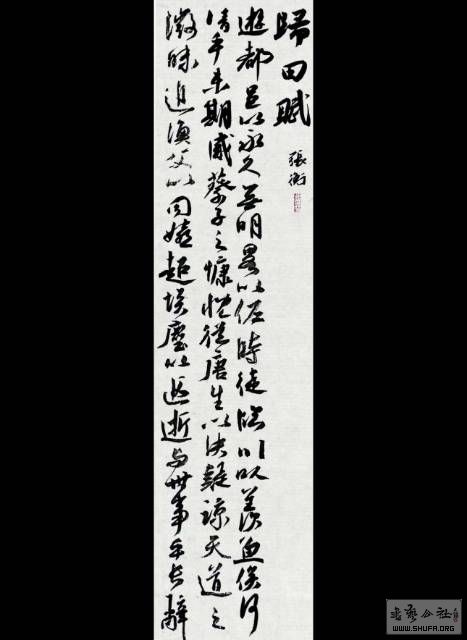 歸田賦
張衡
遊都邑以永久無明畧以佐時徒臨川以羨魚俟河
清乎未期感蔡子之慷慨從唐生以決疑諒天道之
微昧追漁父以同嬉超埃塵以遐逝與世事乎長辭
书艺公社
WWW.SHUFA.ORG